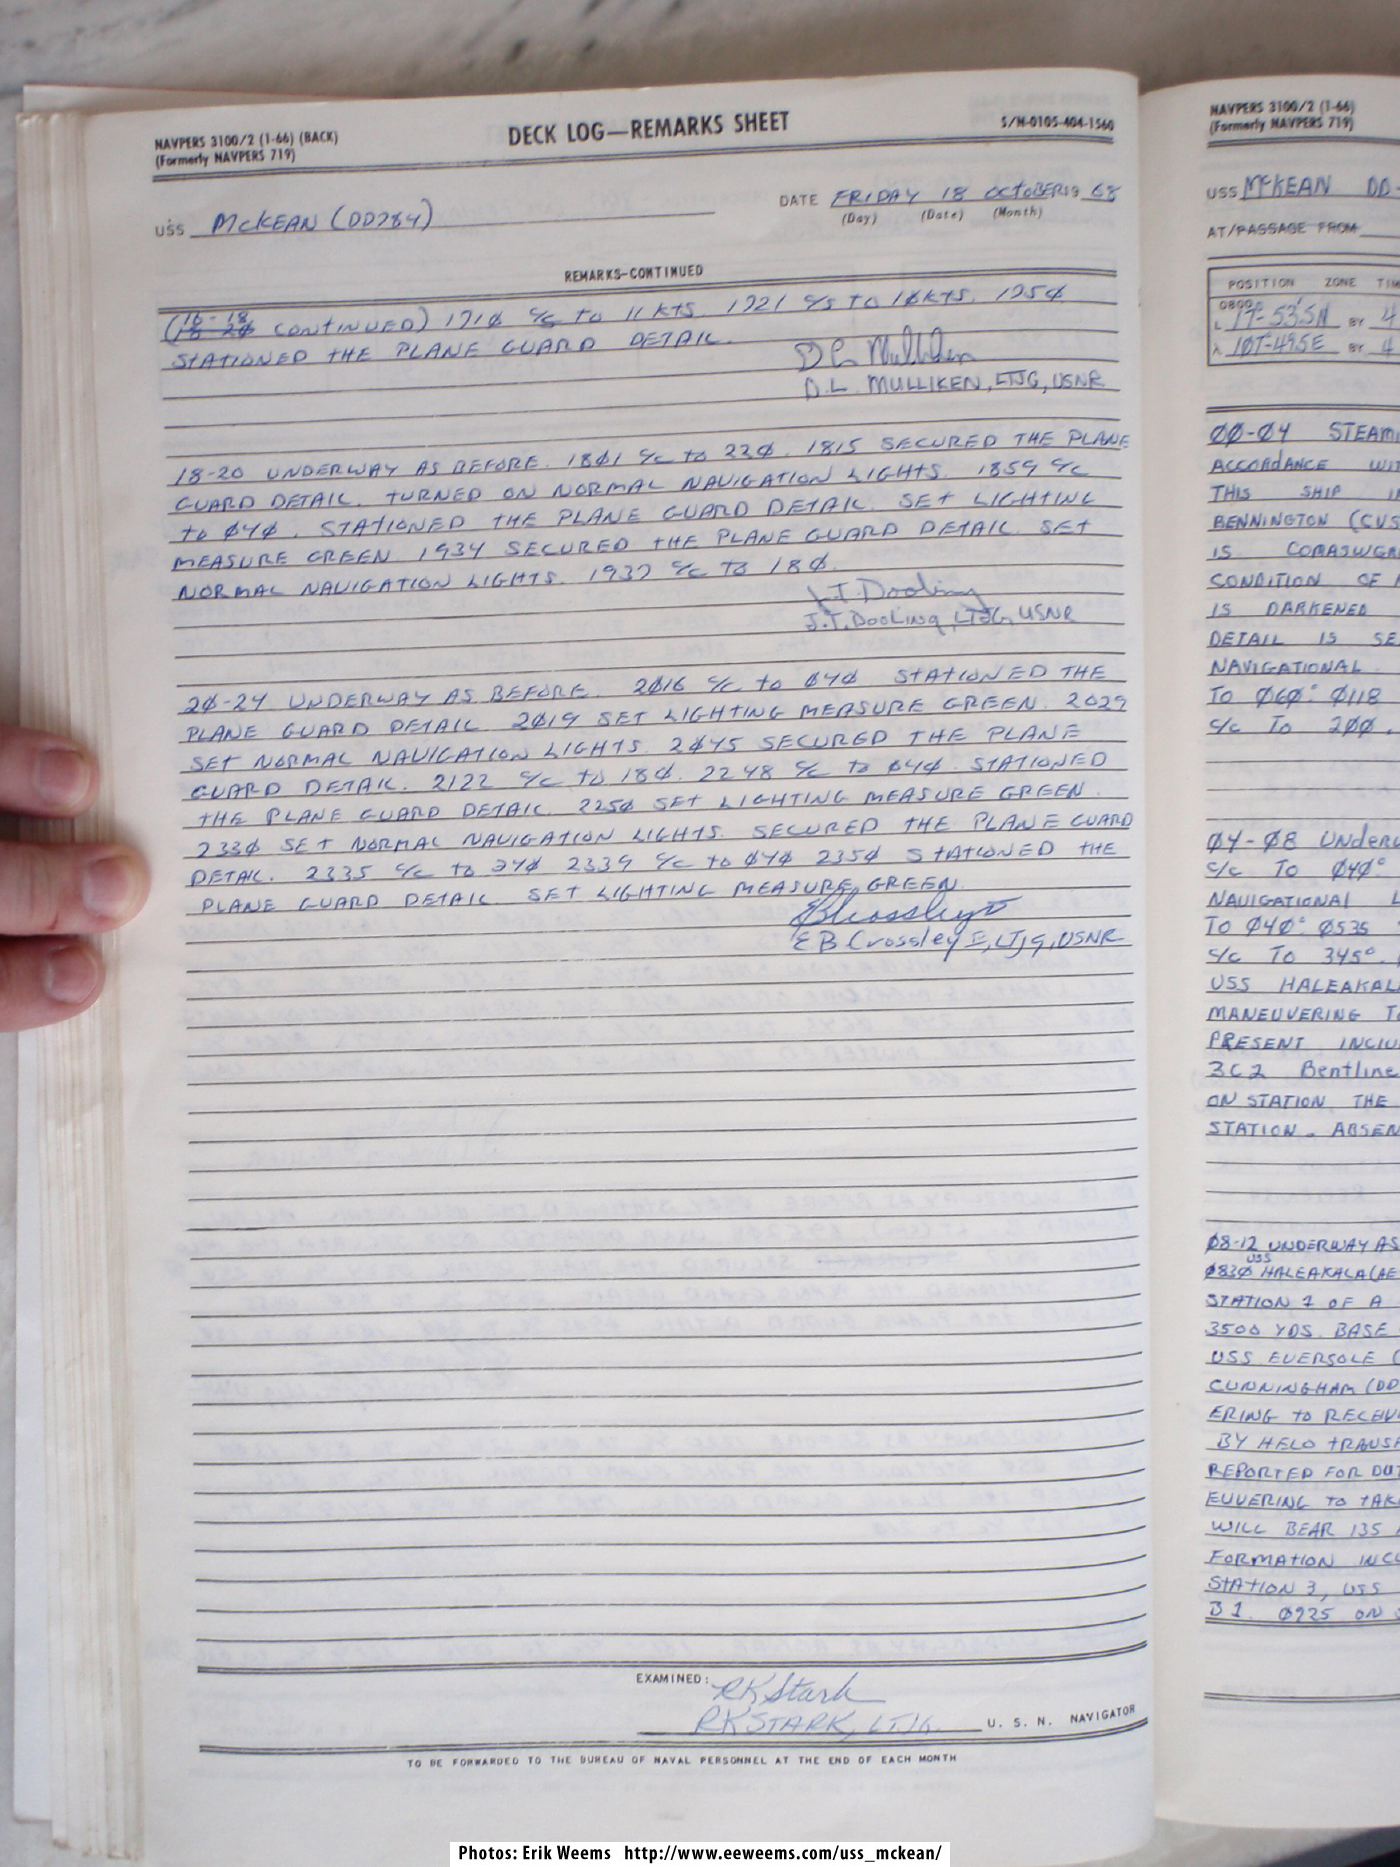 NAVPERS 3100/2 (1-66) (BACK)
(Formerly NAVPERS 719)
DECK LOG—REMARKS SHEET
S/N-0105-404-1560
USS McKEAN (DD784)
DATE FRIDAY 18 OCTOBER 19 68
(Day) (Date) (Month)
REMARKS-CONTINUED
16-18
(18-20 CONTINUED) 171Ø C/C TO 11 KTS. 1721 C/S TO 1ØKTS. 175Ø
STATIONED THE PLANE GUARD DETAIL.
D L Mulliken
D.L. MULLIKEN, LTJG, USNR
18-20 UNDERWAY AS BEFORE. 18Ø1 C/C TO 22Ø. 1815 SECURED THE PLANE
GUARD DETAIL. TURNED ON NORMAL NAVIGATION LIGHTS. 1859 C/C
TO Ø4Ø. STATIONED THE PLANE GUARD DETAIL. SET LIGHTING
MEASURE GREEN. 1934 SECURED THE PLANE GUARD DETAIL. SET
NORMAL NAVIGATION LIGHTS. 1937 C/C TO 18Ø.
J.T. Dooling
J.T. Dooling, LTJG, USNR
2Ø-24 UNDERWAY AS BEFORE. 2Ø16 C/C TO Ø4Ø STATIONED THE
PLANE GUARD DETAIL. 2Ø19 SET LIGHTING MEASURE GREEN. 2029
SET NORMAL NAVIGATION LIGHTS. 2Ø45 SECURED THE PLANE
GUARD DETAIL. 2122 C/C TO 18Ø. 2248 C/C TO Ø4Ø. STATIONED
THE PLANE GUARD DETAIL. 225Ø SET LIGHTING MEASURE GREEN.
233Ø SET NORMAL NAVIGATION LIGHTS. SECURED THE PLANE GUARD
DETAIL. 2335 C/C TO 24Ø 2339 C/C TO Ø4Ø 235Ø STATIONED THE
PLANE GUARD DETAIL. SET LIGHTING MEASURE GREEN.
E B Crossley, LTJG, USNR
EXAMINED: RK Stark
RK STARK, LTJG. U. S. N. NAVIGATOR
TO BE FORWARDED TO THE BUREAU OF NAVAL PERSONNEL AT THE END OF EACH MONTH
NAVPERS 3100/2 (1-66)
(Formerly NAVPERS 719)
USS McKEAN DD-
AT/PASSAGE FROM
POSITION ZONE TIM
0800
L 17-53.5N BY 4
λ 107-49.5E BY 4
ØØ-Ø4 STEAMI
ACCORDANCE WIT
THIS SHIP I
BENNINGTON (CVS
IS COMASWGR
CONDITION OF
IS DARKENED
DETAIL IS SE
NAVIGATIONAL
TO Ø6Ø° Ø118
C/C TO 2ØØ.
Ø4-Ø8 UNDERW
C/C TO Ø4Ø°
NAVIGATIONAL L
TO Ø4Ø° Ø535
C/C TO 345°.
USS HALEAKAL
MANEUVERING TO
PRESENT INCLU
3C2 Bentline
ON STATION, THE
STATION. ABSEN
Ø8-12 UNDERWAY AS
USS
Ø83Ø HALEAKALA (AE
STATION 1 OF A
3500 YDS. BASE
USS EVERSOLE (
CUNNINGHAM (DD
ERING TO RECEIV
BY HELO TRANSF
REPORTED FOR DUT
EUVERING TO TAK
WILL BEAR 135
FORMATION INCL
STATION 3, USS
B1. Ø925 ON S
Photos: Erik Weems http://www.eeweems.com/uss_mckean/